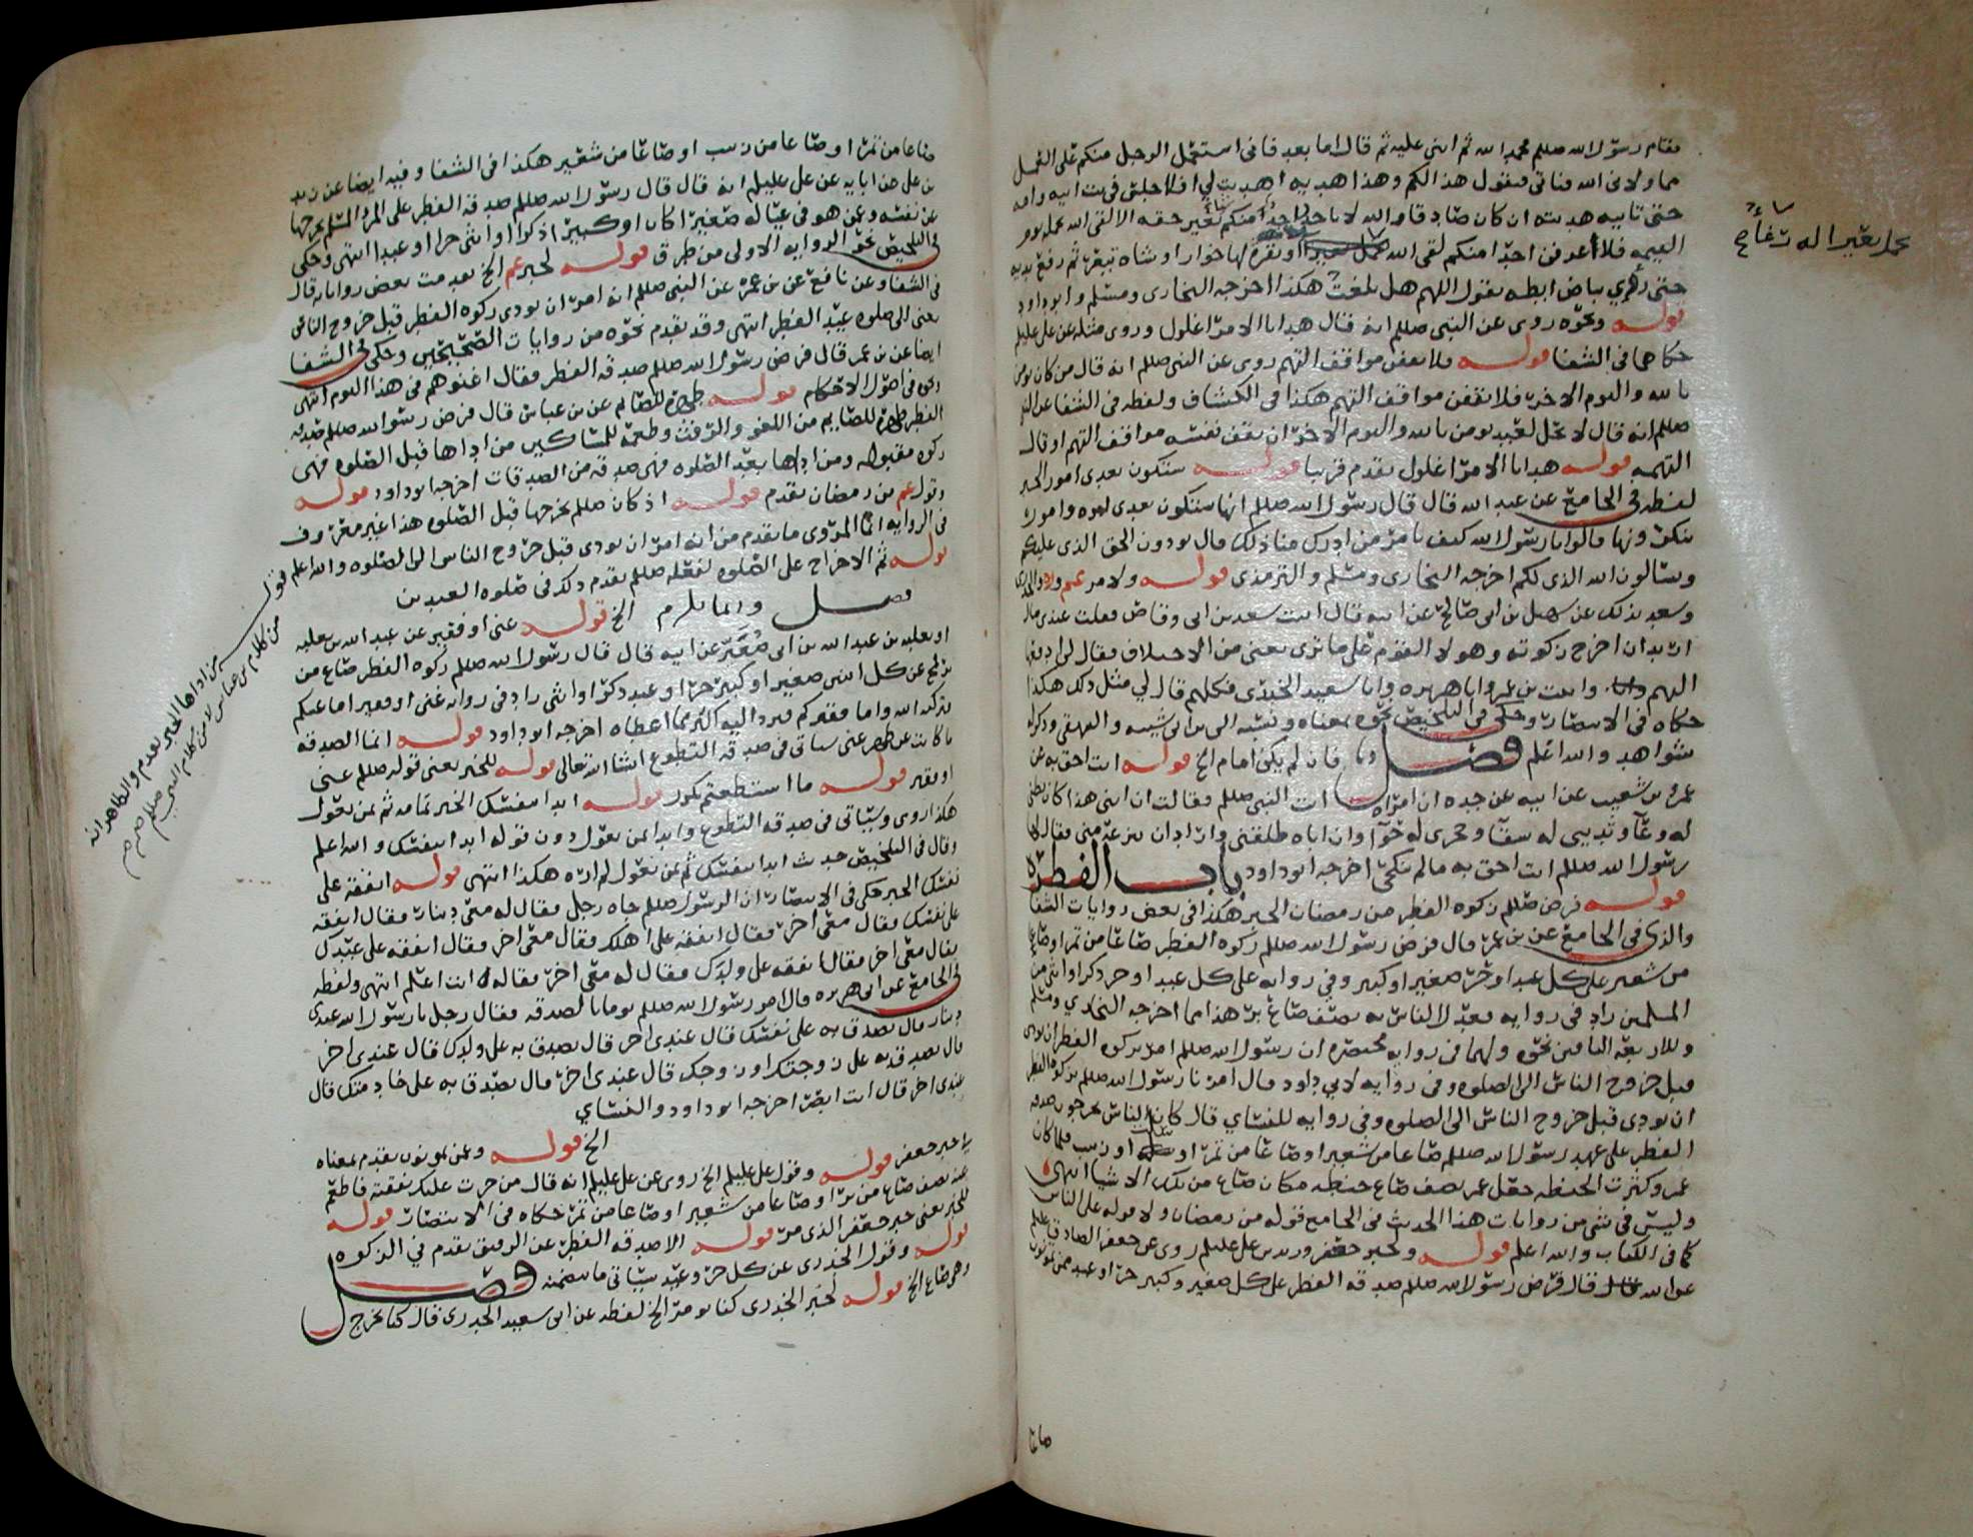 فقام رسول الله صللم فحمد الله ثم اثنى عليه ثم قال اما بعد فانى استعمل الرجل منكم على العمل
مما ولانى الله فياتى فيقول هذا لكم وهذا هديه اهديت لي افلا جلس فى بيت ابيه وامه
حتى تاتيه هديته ان كان صادقا والله لا ياخذ احد منكم شيئا بغير حقه الا لقى الله يحمله يوم
القيمه فلا اعرفن احدا منكم لقى الله اوبقرة لها خوار او شاه تيعر ثم رفع يديه
حتى رؤي بياض ابطيه يقول اللهم هل بلغت هكذا اخرجه البخارى ومسلم وابو داود
قوله ونحوه روى عن النبى صللم انه قال هدايا الامرا غلول وروى مثله عن على عليلم
حكاهما فى الشفا قوله فلا يقفن مواقف التهم روى عن النبى صللم انه قال من كان يومن
بالله واليوم الاخر فلا يقفن مواقف التهم هكذا فى الكشاف ولفظه فى الشفا عن النبى
صللم انه قال لا يحل لعبد يومن بالله واليوم الاخر ان يقف نفسه مواقف التهم او قال
التهمه قوله هدايا الامرا غلول تقدم قريبا قوله ستكون بعدى امور الخبر
لفظه فى الجامع عن عبد الله قال قال رسول الله صللم انها ستكون بعدى اثره وامور
تنكرونها قالوا يا رسول الله كيف تامر من ادرك منا ذلك قال تودون الحق الذى عليكم
وتسالون الله الذى لكم اخرجه البخارى ومسلم والترمذى قوله ولامر عم
وسعد بذلك عن سهيل بن ابى صالح عن ابيه قال اتيت سعد بن ابى وقاص فقلت عندى مال
اريد ان اخرج زكوته وهولا القوم على ما ترى يعنى من الاختلاف فقال لى ادفعها
اليهم واتيت بن عمر وابا هريره وابا سعيد الخدرى فكلهم قال لي مثل ذلك هكذا
حكاه فى الانتصار وحكى فى التلخيص نحوه بمعناه ونسبه الى بن ابى شيبه والبيهقى وذكر له
شواهد والله اعلم فصل فان لم يكن امام الخ قوله انت احق به عن
عمرو بن شعيب عن ابيه عن جده ان امراه اتت النبى صللم فقالت ان ابنى هذا كان بطنى
له وعآ وثديي له سقآ وحجرى له حوآ وان اباه طلقنى واراد ان ينزعه منى فقال لها
رسول الله صللم انت احق به مالم تنكحى اخرجه ابو داود باب الفطره
قوله فرض صللم زكوه الفطر من رمضان الخبر هكذا فى بعض روايات الشفا
والذى فى الجامع عن بن عمر قال فرض رسول الله صللم زكوه الفطر صاعا من تمر او صاعا
من شعير على كل عبد او حر صغير او كبير وفي روايه على كل عبد او حر ذكر او انثى من
المسلمين زاد فى روايه فعدل الناس به نصف صاع بر هذا مما اخرجه البخاري ومسلم
وللاربعه الباقين نحوه ولهما فى روايه مختصره ان رسول الله صللم امر بزكوه الفطر ان تودى
قبل خروج الناس الى الصلوه وفى روايه لابى داود قال امرنا رسول الله صللم بزكوه الفطر
ان تودى قبل خروج الناس الى الصلوه وفي روايه للنسائي قال كان الناس يخرجون صدقه
الفطر على عهد رسول الله صللم صاعا من شعير او صاعا من تمر او سلت او زبيب فلما كان
عمر وكثرت الحنطه جعل عمر نصف صاع حنطه مكان صاع من تلك الاشيا انتهى
وليس فى شى من روايات هذا الحديث فى الجامع قوله من رمضان ولا قوله على الناس
كما فى الكتاب والله اعلم قوله ولخبر جعفر وزيد بن على عليلم روى عن جعفر الصادق عليلم
قال فرض رسول الله صللم صدقه الفطر على كل صغير وكبير حر او عبد ممن تمونون
صاعا
صاعا من تمر او صاعا من زبيب او صاعا من شعير هكذا فى الشفا وفيه ايضا عن زيد
بن على عن ابايه عن على عليلم انه قال قال رسول الله صللم صدقه الفطر على المرء المسلم يخرجها
عن نفسه وعمن هو فى عياله صغيرا كان او كبيرا ذكرا او انثى حرا او عبدا انتهى وحكى
فى التلخيص نحو الروايه الاولى من طرق قوله لخبر عم الخ تقدمت بعض رواياته قال
فى الشفا وعن نافع عن بن عمر عن النبى صللم انه امر ان تودى زكوه الفطر قبل خروج الناس
يعنى الى صلوه عيد الفطر انتهى وقد تقدم نحوه من روايات الصحيحين وحكى فى الشفا
ايضا عن بن عمر قال فرض رسول الله صللم صدقه الفطر فقال اغنوهم فى هذا اليوم انتهى
ونحوه فى اصول الاحكام قوله طهرة للصايم عن بن عباس قال فرض رسول الله صللم صدقه
الفطر طهرة للصايم من اللغو والرفث وطعمة للمساكين من اداها قبل الصلوه فهى
زكوه مقبوله ومن اداها بعد الصلوه فهى صدقه من الصدقات اخرجه ابو داود قوله
وقول عم من رمضان تقدم قوله اذ كان صللم يخرجها قبل الصلوه هذا غير معروف
فى الروايه انما المروى ما تقدم من انه امر ان تودى قبل خروج الناس الى الصلوه والله اعلم
قوله ثم الاخراج على الصلوه لفعله صللم تقدم ذلك فى صلوه العيدين
فصل وانما يلزم الخ قوله غنى او فقير عن عبد الله بن ثعلبه
او ثعلبه بن عبد الله بن ابى صعير عن ابيه قال قال رسول الله صللم زكوه الفطر صاع من
بر او قمح عن كل اثنين صغير او كبير حر او عبد ذكر او انثى زاد فى روايه غنى او فقير اما غنيكم
فيزكيه الله واما فقيركم فيرد اليه اكثر مما اعطاه اخرجه ابو داود قوله انما الصدقه
ما كانت عن ظهر غنى سياتى فى صدقه التطوع انشا الله تعالى قوله للخبر يعنى قوله صللم غنى
او فقير قوله ما استطعتم تكرر قوله ابدا بنفسك الخبر تمامه ثم بمن تعول
هكذا روى وسياتى فى صدقه التطوع وابدا بمن تعول دون قوله ابدا بنفسك والله اعلم
وقال فى التلخيص حديث ابدا بنفسك ثم بمن تعول لم اره هكذا انتهى قوله انفقه على
نفسك الخبر حكى فى الانتصار ان الرسول صللم جاه رجل فقال له معى دينار فقال انفقه
على نفسك فقال معى اخر فقال انفقه على اهلك فقال معى اخر فقال انفقه على عبدك
فقال معى اخر فقال انفقه على ولدك فقال له معى اخر فقال له انت اعلم انتهى ولفظه
فى الجامع عن ابى هريره قال امر رسول الله صللم يوما بالصدقه فقال رجل يا رسول الله عندى
دينار قال تصدق به على نفسك قال عندى اخر قال تصدق به على ولدك قال عندى اخر
قال تصدق به على زوجتك او زوجك قال عندى اخر قال تصدق به على خادمك قال
عندى اخر قال انت ابصر اخرجه ابو داود والنسائي
الخ قوله وعمن تمونون تقدم بمعناه
فى خبر جعفر قوله وقول على عليلم الخ روى عن على عليلم انه قال من جرت عليك نفقته فاطعم
عنه نصف صاع من بر او صاعا من شعير او صاعا من تمر حكاه فى الانتصار قوله
للخبر يعنى خبر جعفر الذى مر قوله الا صدقه الفطر عن الرقيق تقدم في الزكوه
قوله وقول الخدرى عن كل حر وعبد سياتى ما يتضمنه فصل
وهى صاع الخ قوله لخبر الخدرى كنا نومر الخ لفظه عن ابى سعيد الخدرى قال كنا نخرج
قوله من اداها الخبر تقدم والظاهر انه
من كلام بن عباس لا من كلام النبى صللم